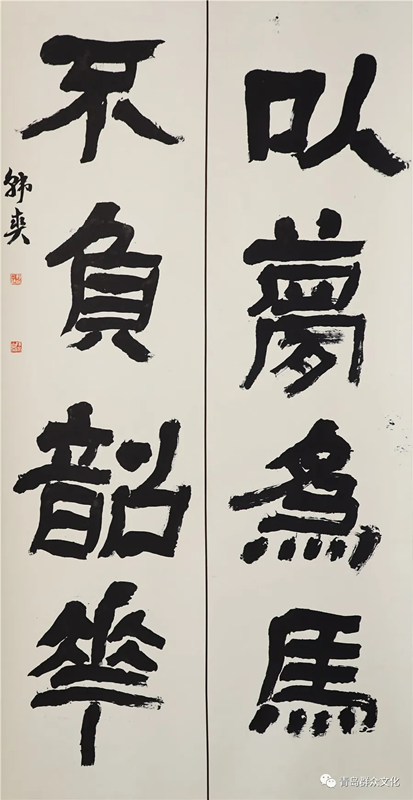 以夢為馬
不負韶華
韩爽
青岛群众文化